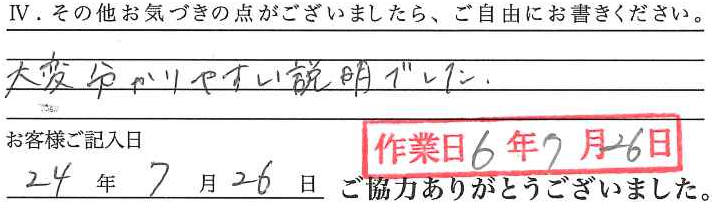 Ⅳ．その他お気づきの点がございましたら、ご自由にお書きください。
大変分かりやすい説明でした.
お客様ご記入日
作業日6年7月26日
24年7月26日
ご協力ありがとうございました。